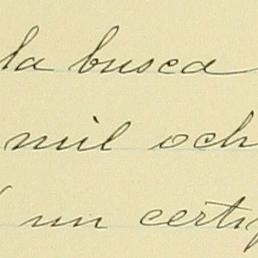 la busca
mil och
un certif